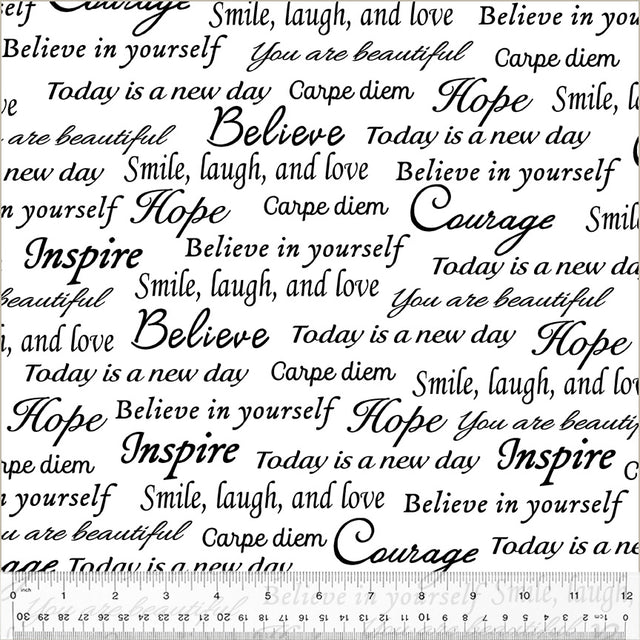 self Courage Smile, laugh, and love Believe in you
Believe in yourself You are beautiful Carpe diem
ve Today is a new day Carpe diem Hope Smile, l
are beautiful Believe Today is a new day
new day Smile, laugh, and love Believe in yourself
n yourself Hope Carpe diem Courage Smil
Inspire Believe in yourself Today is a new da
beautiful Smile, laugh, and love You are beautiful
, and love Believe Today is a new day Hope
Today is a new day Carpe diem Smile, laugh, and lov
Hope Believe in yourself Hope You are beautif
rpe diem Inspire Today is a new day Inspire C
n yourself Smile, laugh, and love Believe in yourself
u are beautiful Carpe diem Courage Today is a ne
age Today is a new day
Believe in yourself Smile, laugh
You are beautiful
0 inch 1 2 3 4 5 6 7 8 9 10 11 12
30 29 28 27 26 25 24 23 22 21 20 19 18 17 16 15 14 13 12 11 10 9 8 7 6 5 4 3 2 1